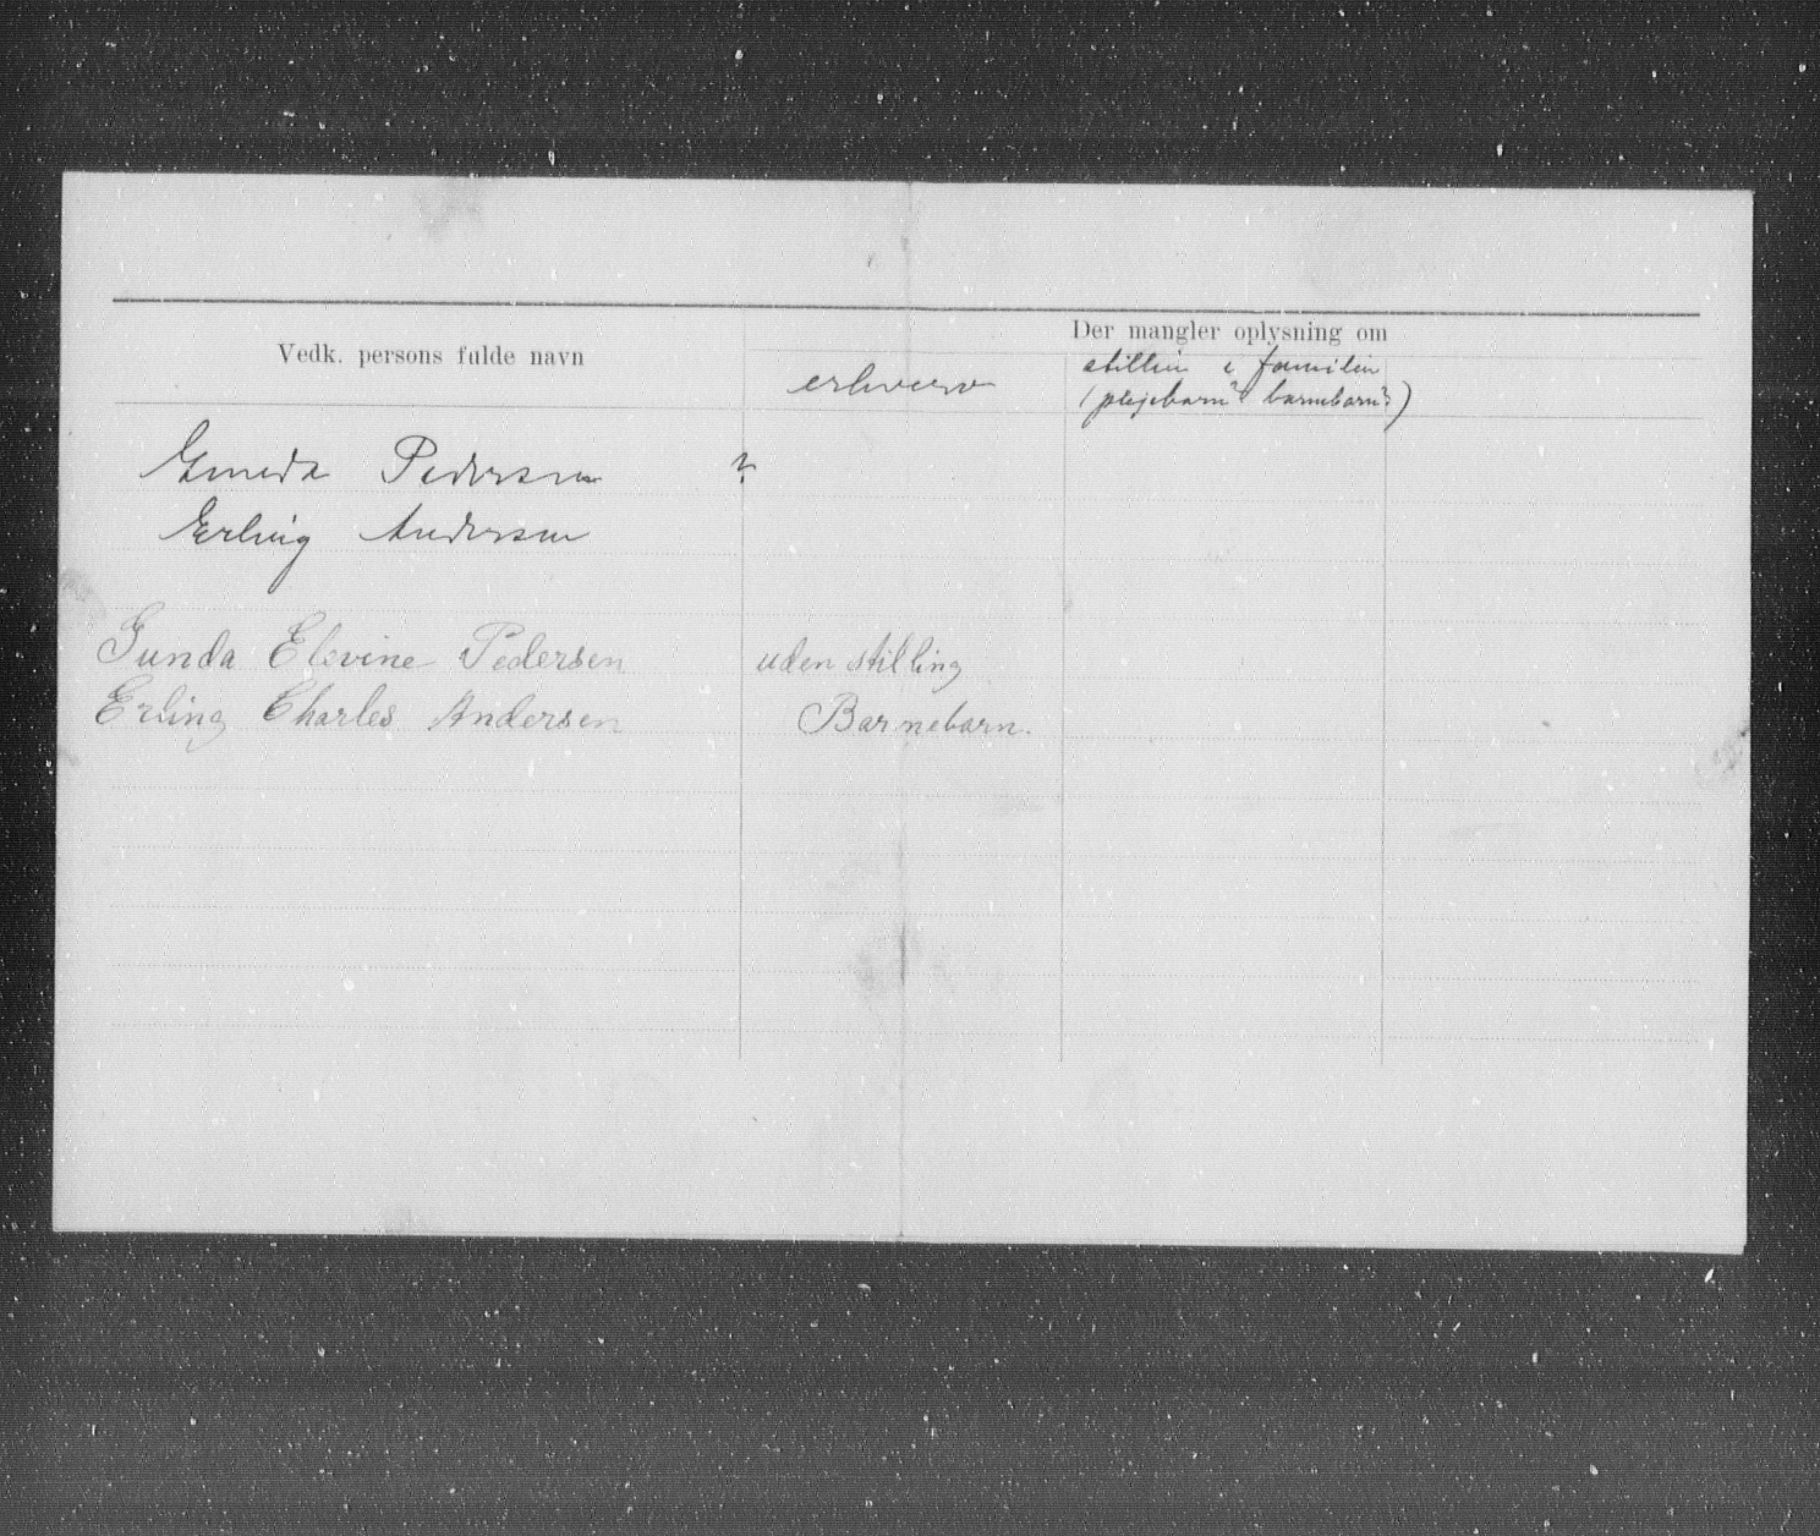 Der mangler oplysning om
Vedk. persons fulde navn
erhverv
stillin i familien
(plejebarn? barnebarn?)
Gunda Pedersen ?
Erling Andersen
Gunda Elevine Pedersen uden stilling
Erling Charles Andersen Barnebarn.